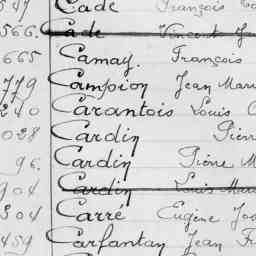 Cade François
566. Cade Vincent
665 Camay. François
779 Campion Jean Mari
240 Carantois Louis
028 Cardin Pierr
96. Cardin Pierre M
904 Cardin Louis Mari
304 Carré Eugène Jos
459 Carfantan Jean Fr